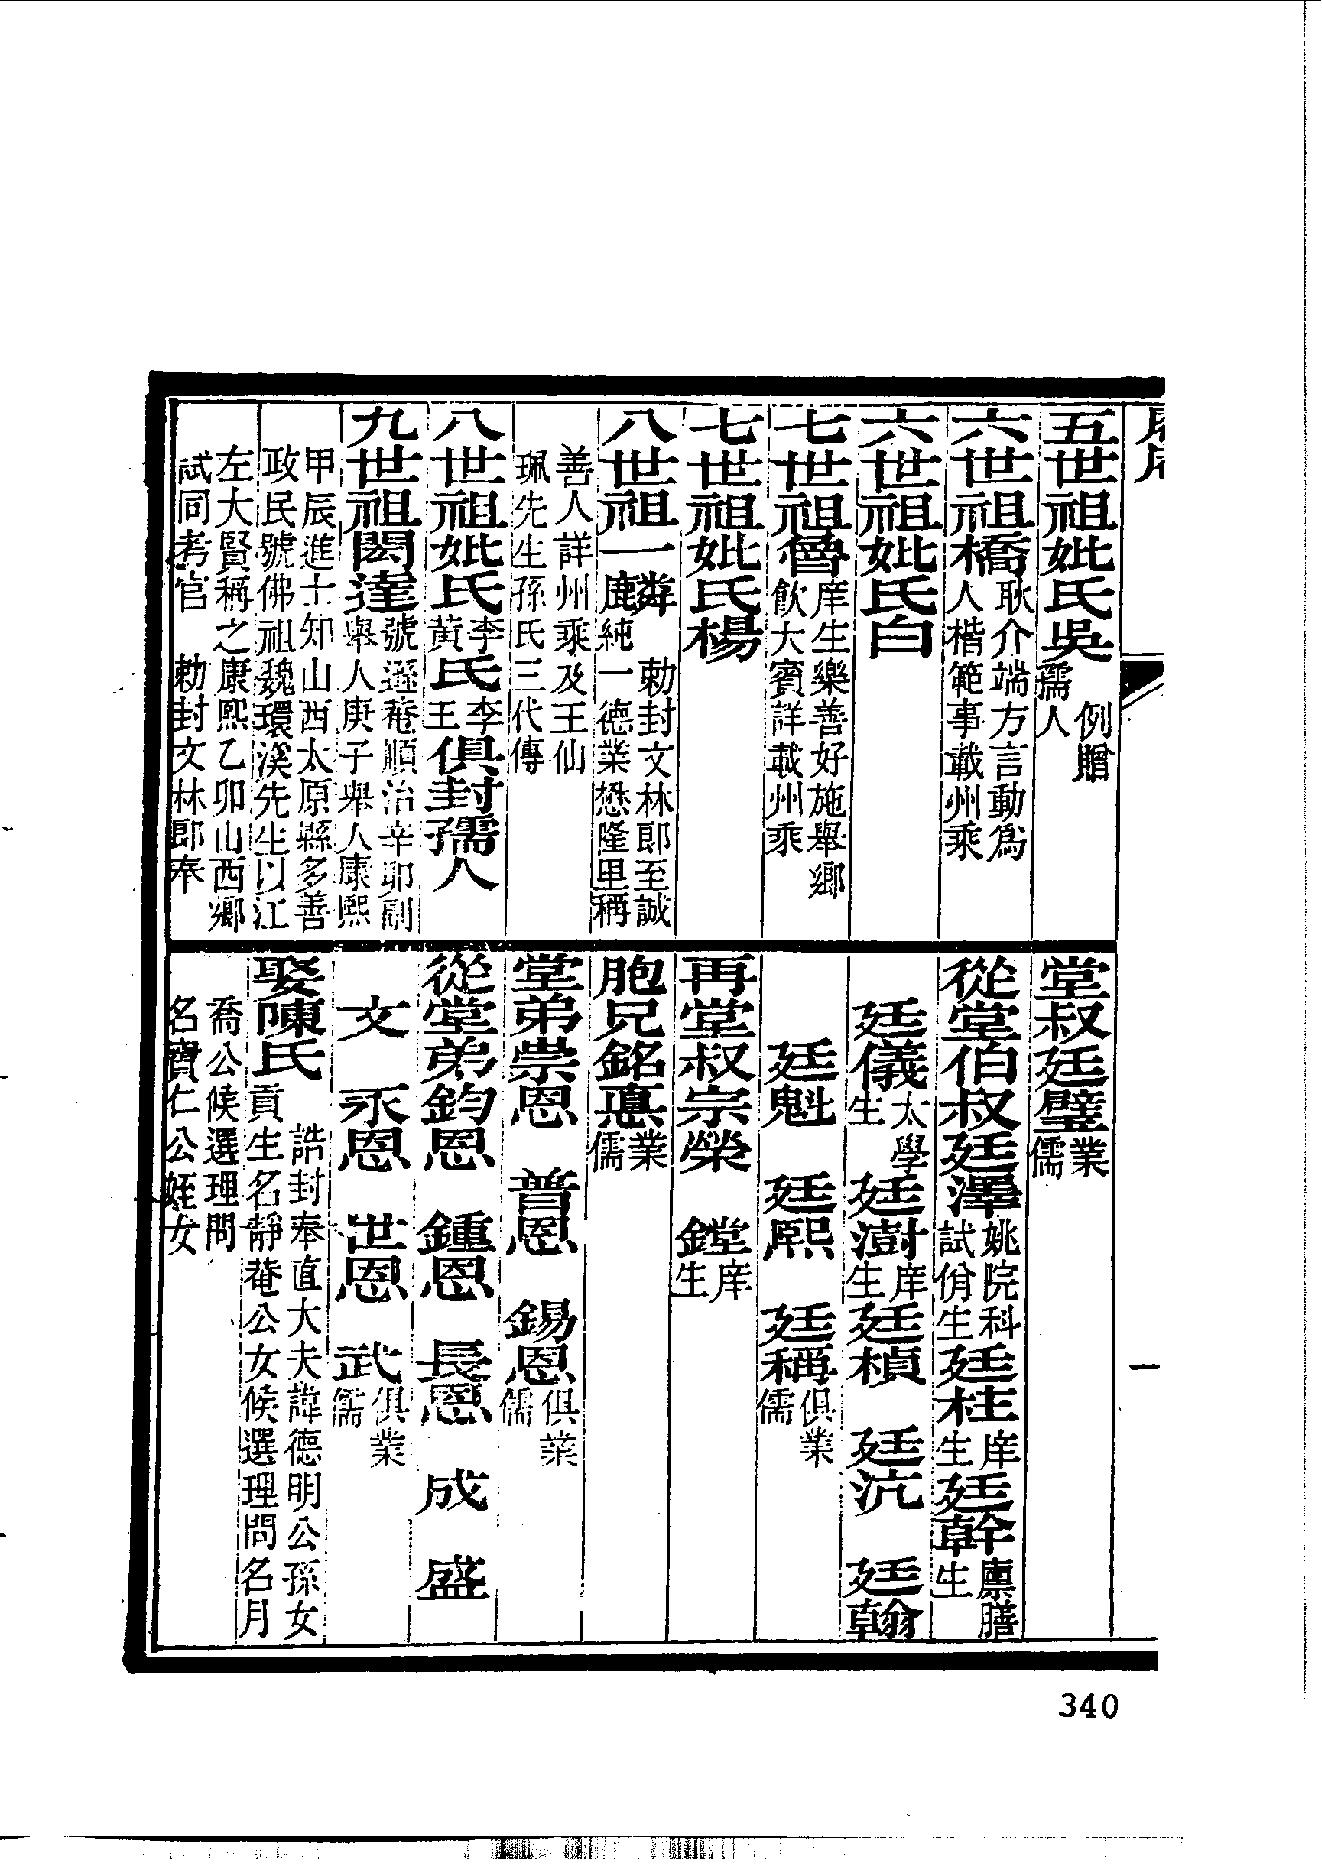 五世祖妣氏吳例贈孺人
六世祖橋耿介端方言動爲人楷範事載州乘
六世祖妣氏白
七世祖魯庠生樂善好施舉鄉飲大賓詳載州乘
七世祖妣氏楊
八世祖一麟勅封文林郎至誠鹿純一德業懋隆里稱
善人詳州乘及王仙珮先生孫氏三代傳
八世祖妣氏李黃氏李王俱封孺人
九世祖閎達號遜菴順治辛卯副舉人庚子舉人康熙
甲辰進士知山西太原縣多善政民號佛祖魏環溪先生以江
左大賢稱之康熙乙卯山西鄉試同考官 勅封文林郎奉
堂叔廷璧業儒
從堂伯叔廷澤姚院科試佾生廷柱庠生廷幹廩膳生
廷儀太學生 廷澍庠生廷楨 廷沆 廷翰
廷魁 廷熙 廷稱俱業儒
再堂叔宗榮 鏜庠生
胞兄銘惪業儒
堂弟崇恩 普恩 錫恩俱業儒
從堂弟鈞恩 鍾恩 長恩 成 盛
文 永恩 世恩 武俱業儒
娶陳氏誥封奉直大夫諱德明公孫女貢生名靜菴公女候選理問名月
喬公候選理問名寶仁公姪女
一
340